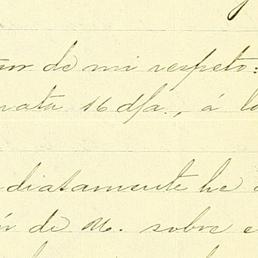 de mi respeto:
rata 16 d/a., á lo
diatamente he
de U. sobre e